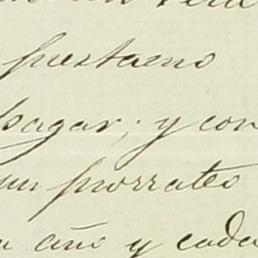 prestamo
pagar; y con
un prorrateo
año y cada